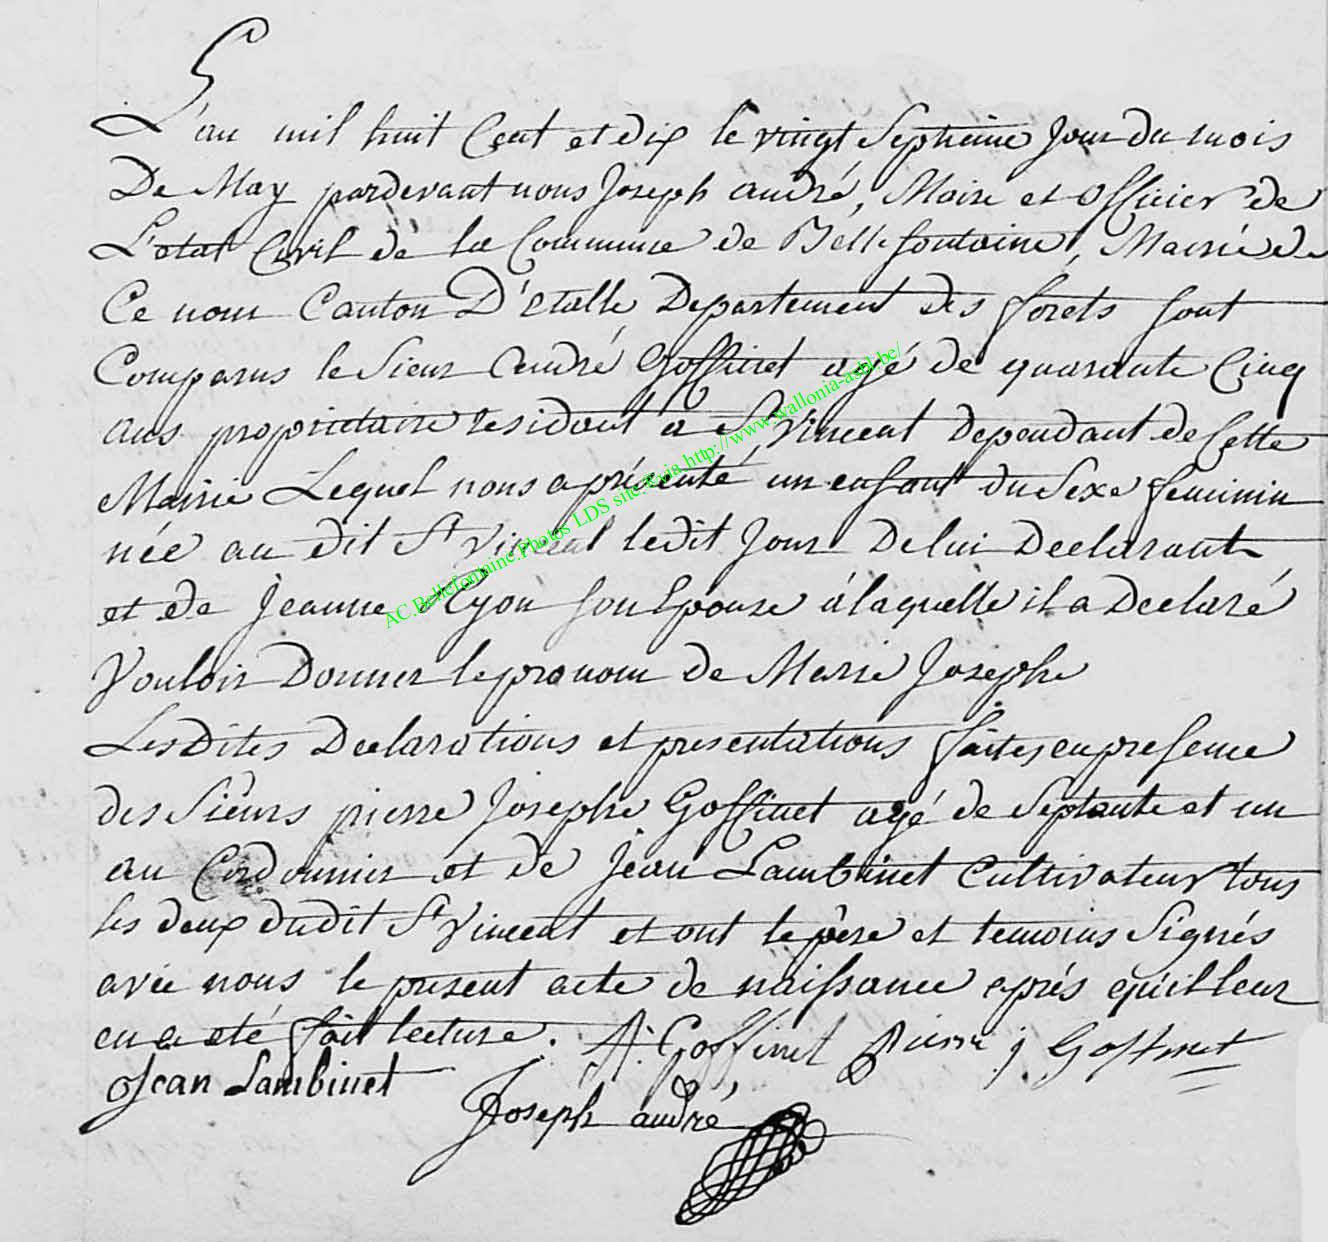 L'an mil huit Cent et dix le vingt Septieme Jour du mois
De May pardevant nous Joseph andré, Maire et officier de
L'etat Civil de la Commune de Bellefontaine, Mairie de
Ce nom Canton D'Etalle Departement des forets sont
Comparus le Sieur André Goffinet agé de quarante Cinq
ans proprietaire residant a St Vincent dependant de Cette
Mairie Lequel nous a présenté un enfant du Sexe feminin
née au dit St Vincent ledit Jour De lui Declarant
et de Jeanne son Epouse à laquelle il a Declaré
Vouloir Donner le prenom de Marie Josephe
Les Dites Declarations et presentations faites en presence
des Sieurs pierre Josephe Goffinet agé de Septante et un
an Cordonnier et de Jean Lambinet Cultivateur tous
les deux dudit St Vincent et ont le père et temoins Signés
avec nous le present acte de naissance après qu'il leur
en a eté fait lecture. A: Goffinet Pierre j Goffinet
Jean Lambinet
Joseph andré
AC.Bellefontaine.Photos LDS site: via http://www.wallonia-asbl.be/